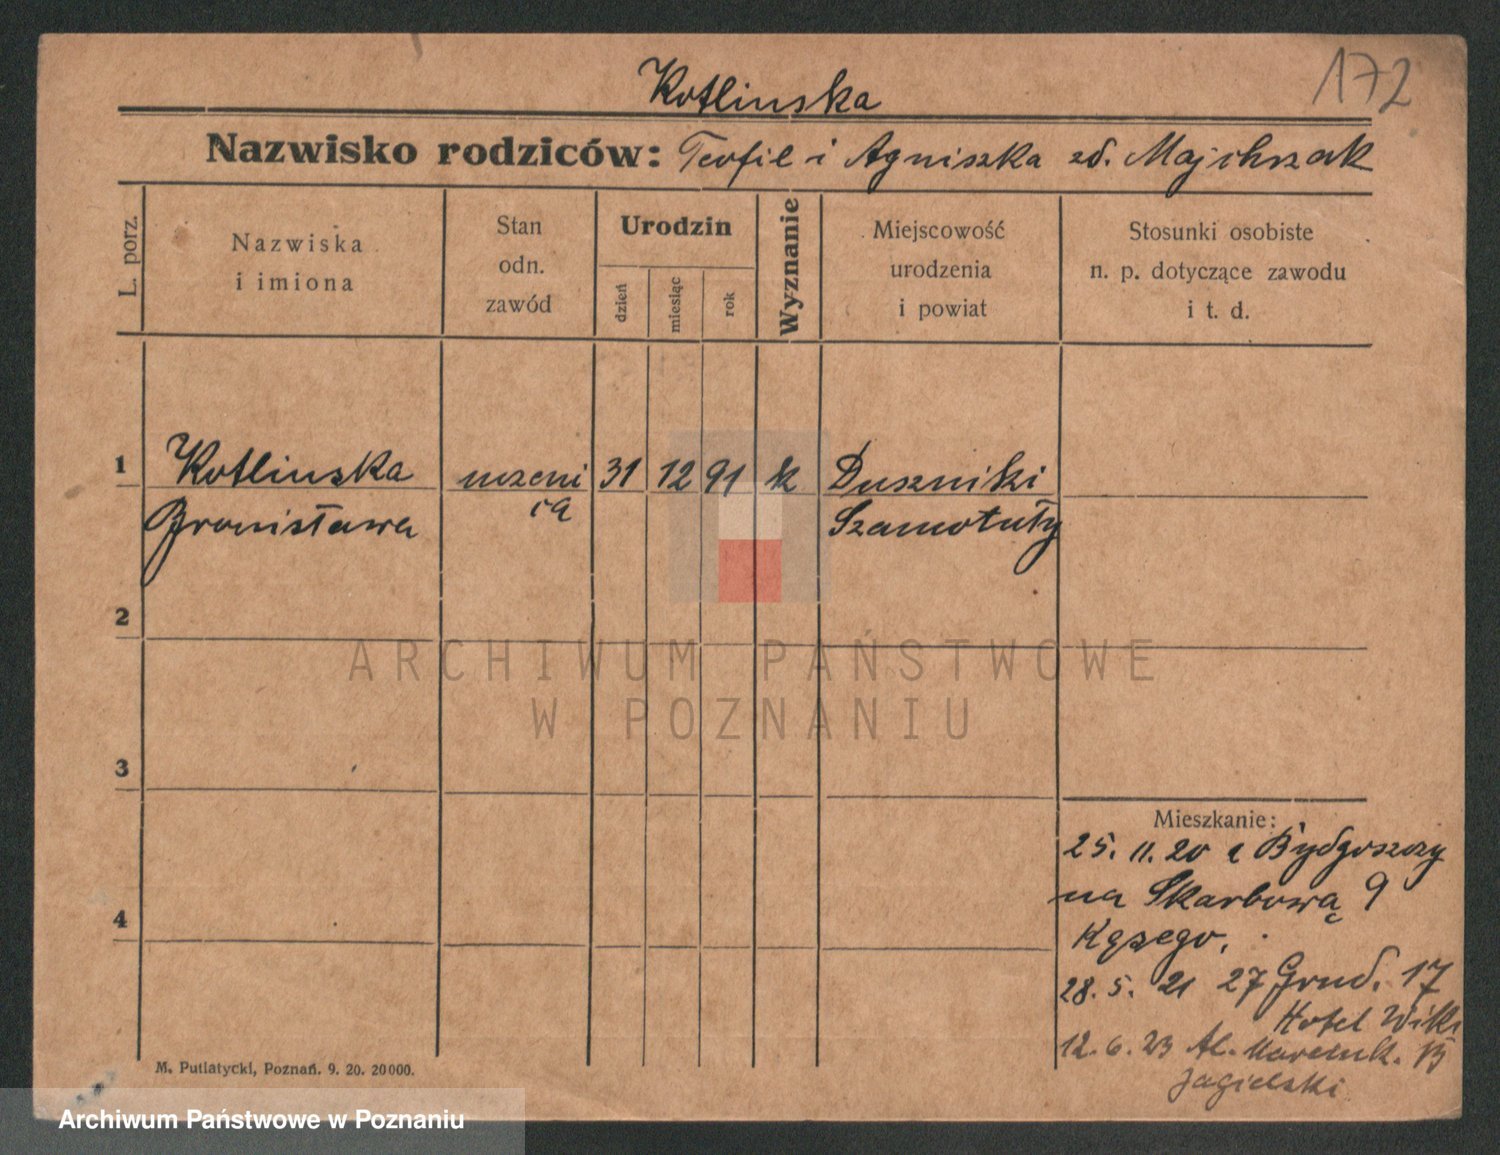 172
Kotlinska
Nazwisko rodziców: Teofil i Agniszka zd. Majchrzak
L. porz.
Nazwiska
i imiona
Stan
odn.
zawód
Urodzin
dzień
miesiąc
rok
Wyznanie
Miejscowość
urodzenia
i powiat
Stosunki osobiste
n. p. dotyczące zawodu
i t. d.
1 Kotlinska 31 12 91 k Duszniki
Bronisława Szamotuły
2
ARCHIWUM PAŃSTWOWE
W POZNANIU
3
4
Mieszkanie:
25. 11. 20 z Bydgoszczy
na Skarbową 9
28. 5. 21 27 Grud. 17
Hotel
12. 6. 23 Al.
Jagielski
M. Putiatycki, Poznań. 9. 20. 20000.
Archiwum Państwowe w Poznaniu